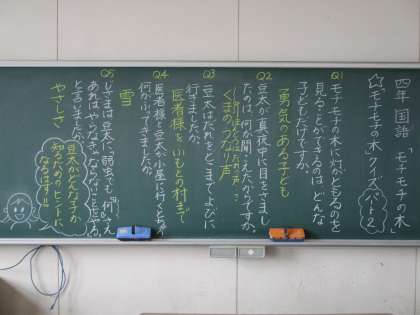 四年 国語 「モチモチの木」
☆「モチモチの木クイズ」パート2
Q1
モチモチの木に灯がともるのを
見ることができるのは、どんな
子どもだけですか。
勇気のある子ども
Q2
豆太が真夜中に目をさまし
たのは、何が聞こえたからですか。
くまのうなり声
Q3
豆太はだれをどこまでよびに
行きましたか。
医者様をふもとの村まで
Q4
医者様と豆太が小屋に行くとちゅう
何がふってきましたか。
雪
Q5
じさまは豆太に、「弱虫でも、『何』さえ
あれば、やるべきことをやる。」
と言いましたか。
やさしさ
豆太がどんな子か
知るためのヒントに
なるはず!!